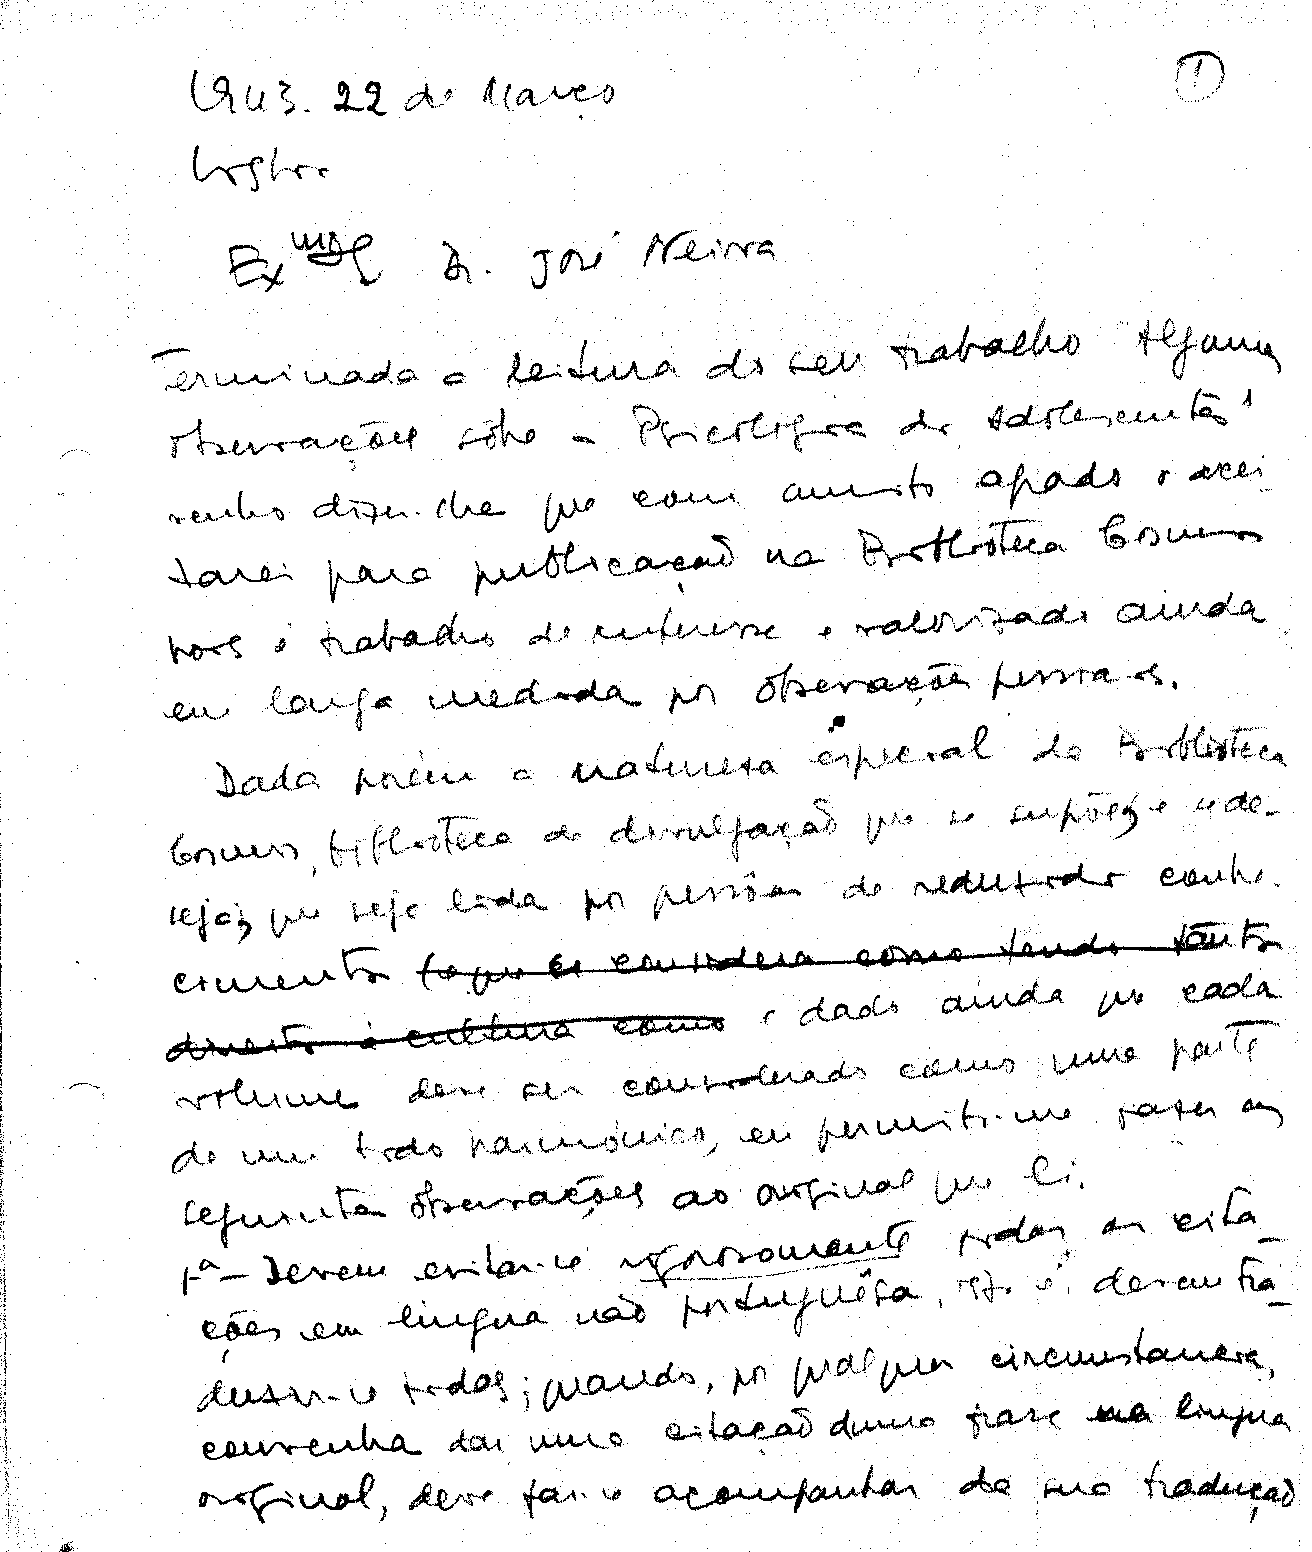 1
1943. 22 de Março
Lisboa
Exmo Dr. José Neiva
Terminada a leitura do seu trabalho Algumas
observações sôbre a Psicologia do Adolescente
venho dizer-lhe que com muito agrado o acei-
tarei para publicação na Biblioteca Cosmos
pois é trabalho de interesse e valorizado ainda
em larga medida por observações pessoais.
Dada porém a natureza especial da Biblioteca
Cosmos, biblioteca de divulgação que se supõe e se de-
seja que seja lida por pessoas de reduzido conhe-
cimento (e que se considera como tendo tanto
direito à cultura como e dado ainda que cada
volume deve ser considerado como uma parte
de um todo harmónico, eu permito-me fazer as
seguintes observações ao original que li.
1ª - Devem evitar-se rigorosamente todas as cita-
ções em língua não portuguêsa, isto é, devem tra-
duzir-se todas; quando, por qualquer circunstancia,
convenha dar uma citação duma frase na lingua
original, deve fazê-lo acompanhar da sua tradução